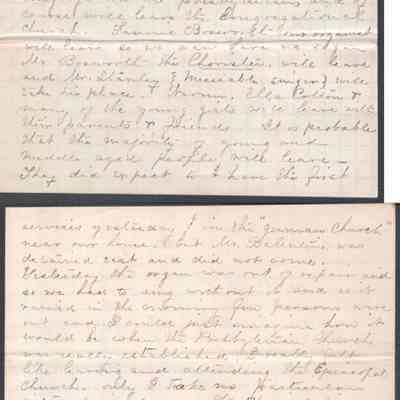 course will leave the Congregational
church. Fannie our organist
will leave so we will have no organ
Mr. Bosworth the Chorister, will leave
and Mr. Stanley E miserable singer will
take his place. Ella Colton &
many of the young girls will leave with
their parents & friends. It is probable
that the majority of young and
middle aged people will leave —
They did expect to have the first
services yesterday in the "German Church"
near our house but Mr. was
detained east and did not come.
Yesterday the organ was out of repair and
so we had to sing without it and as it
rained in the morning few persons were
out and I could just imagine how it
would be when the Presbyterian Church
was really established. I really felt
like leaving and attending the Episcopal
Church, only I take no particular